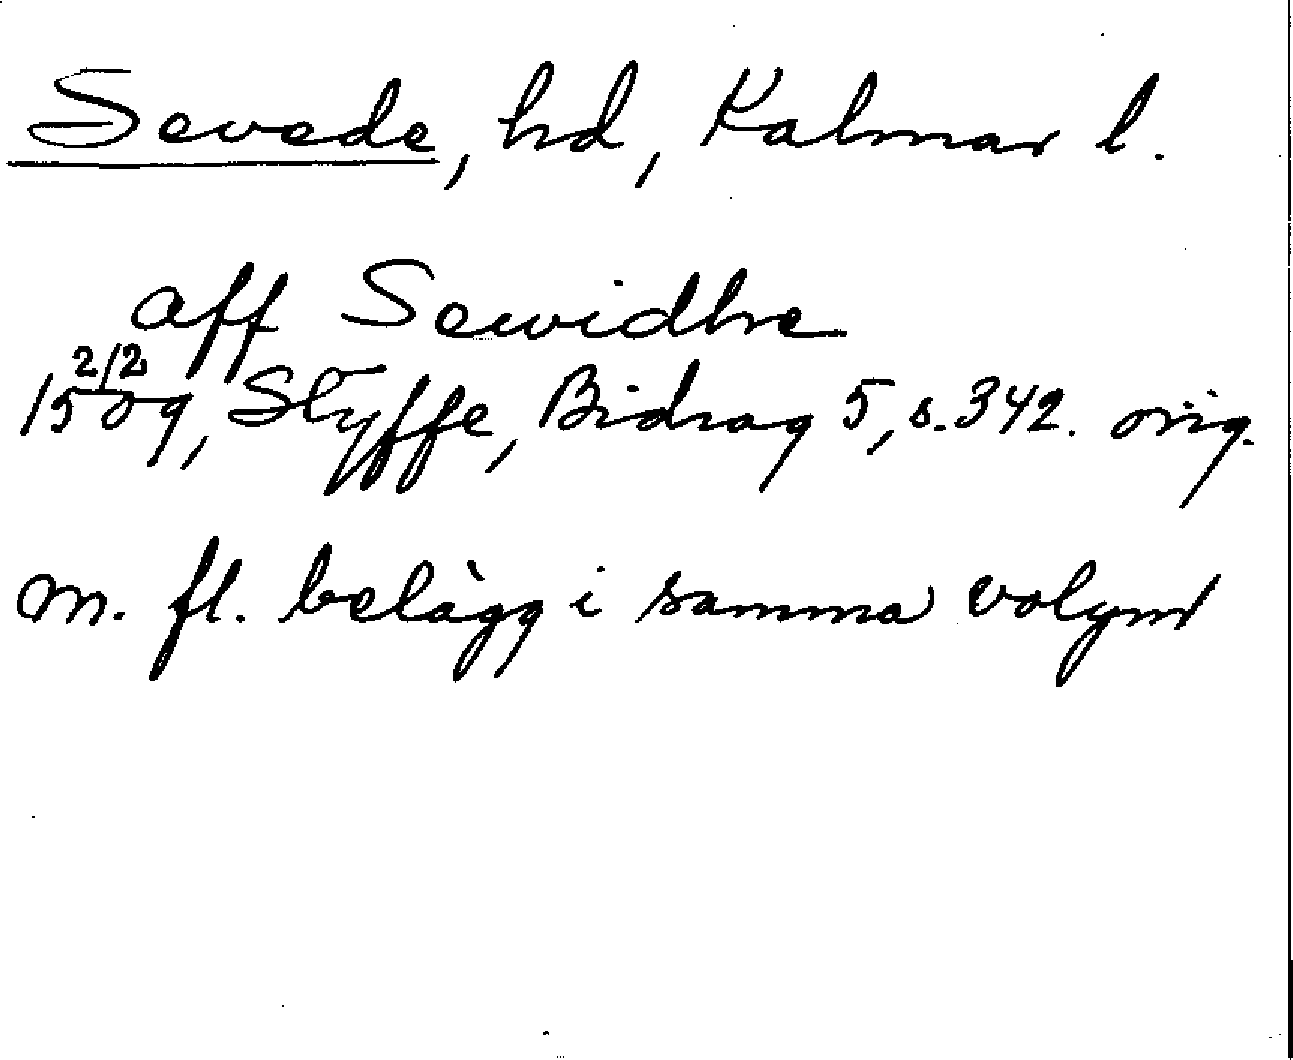 Sevede, hd, Kalmar l.
aff Sewidhe
2/2
1509, Styffe, Bidrag 5, s. 342. orig.
m. fl. belägg i samma volym